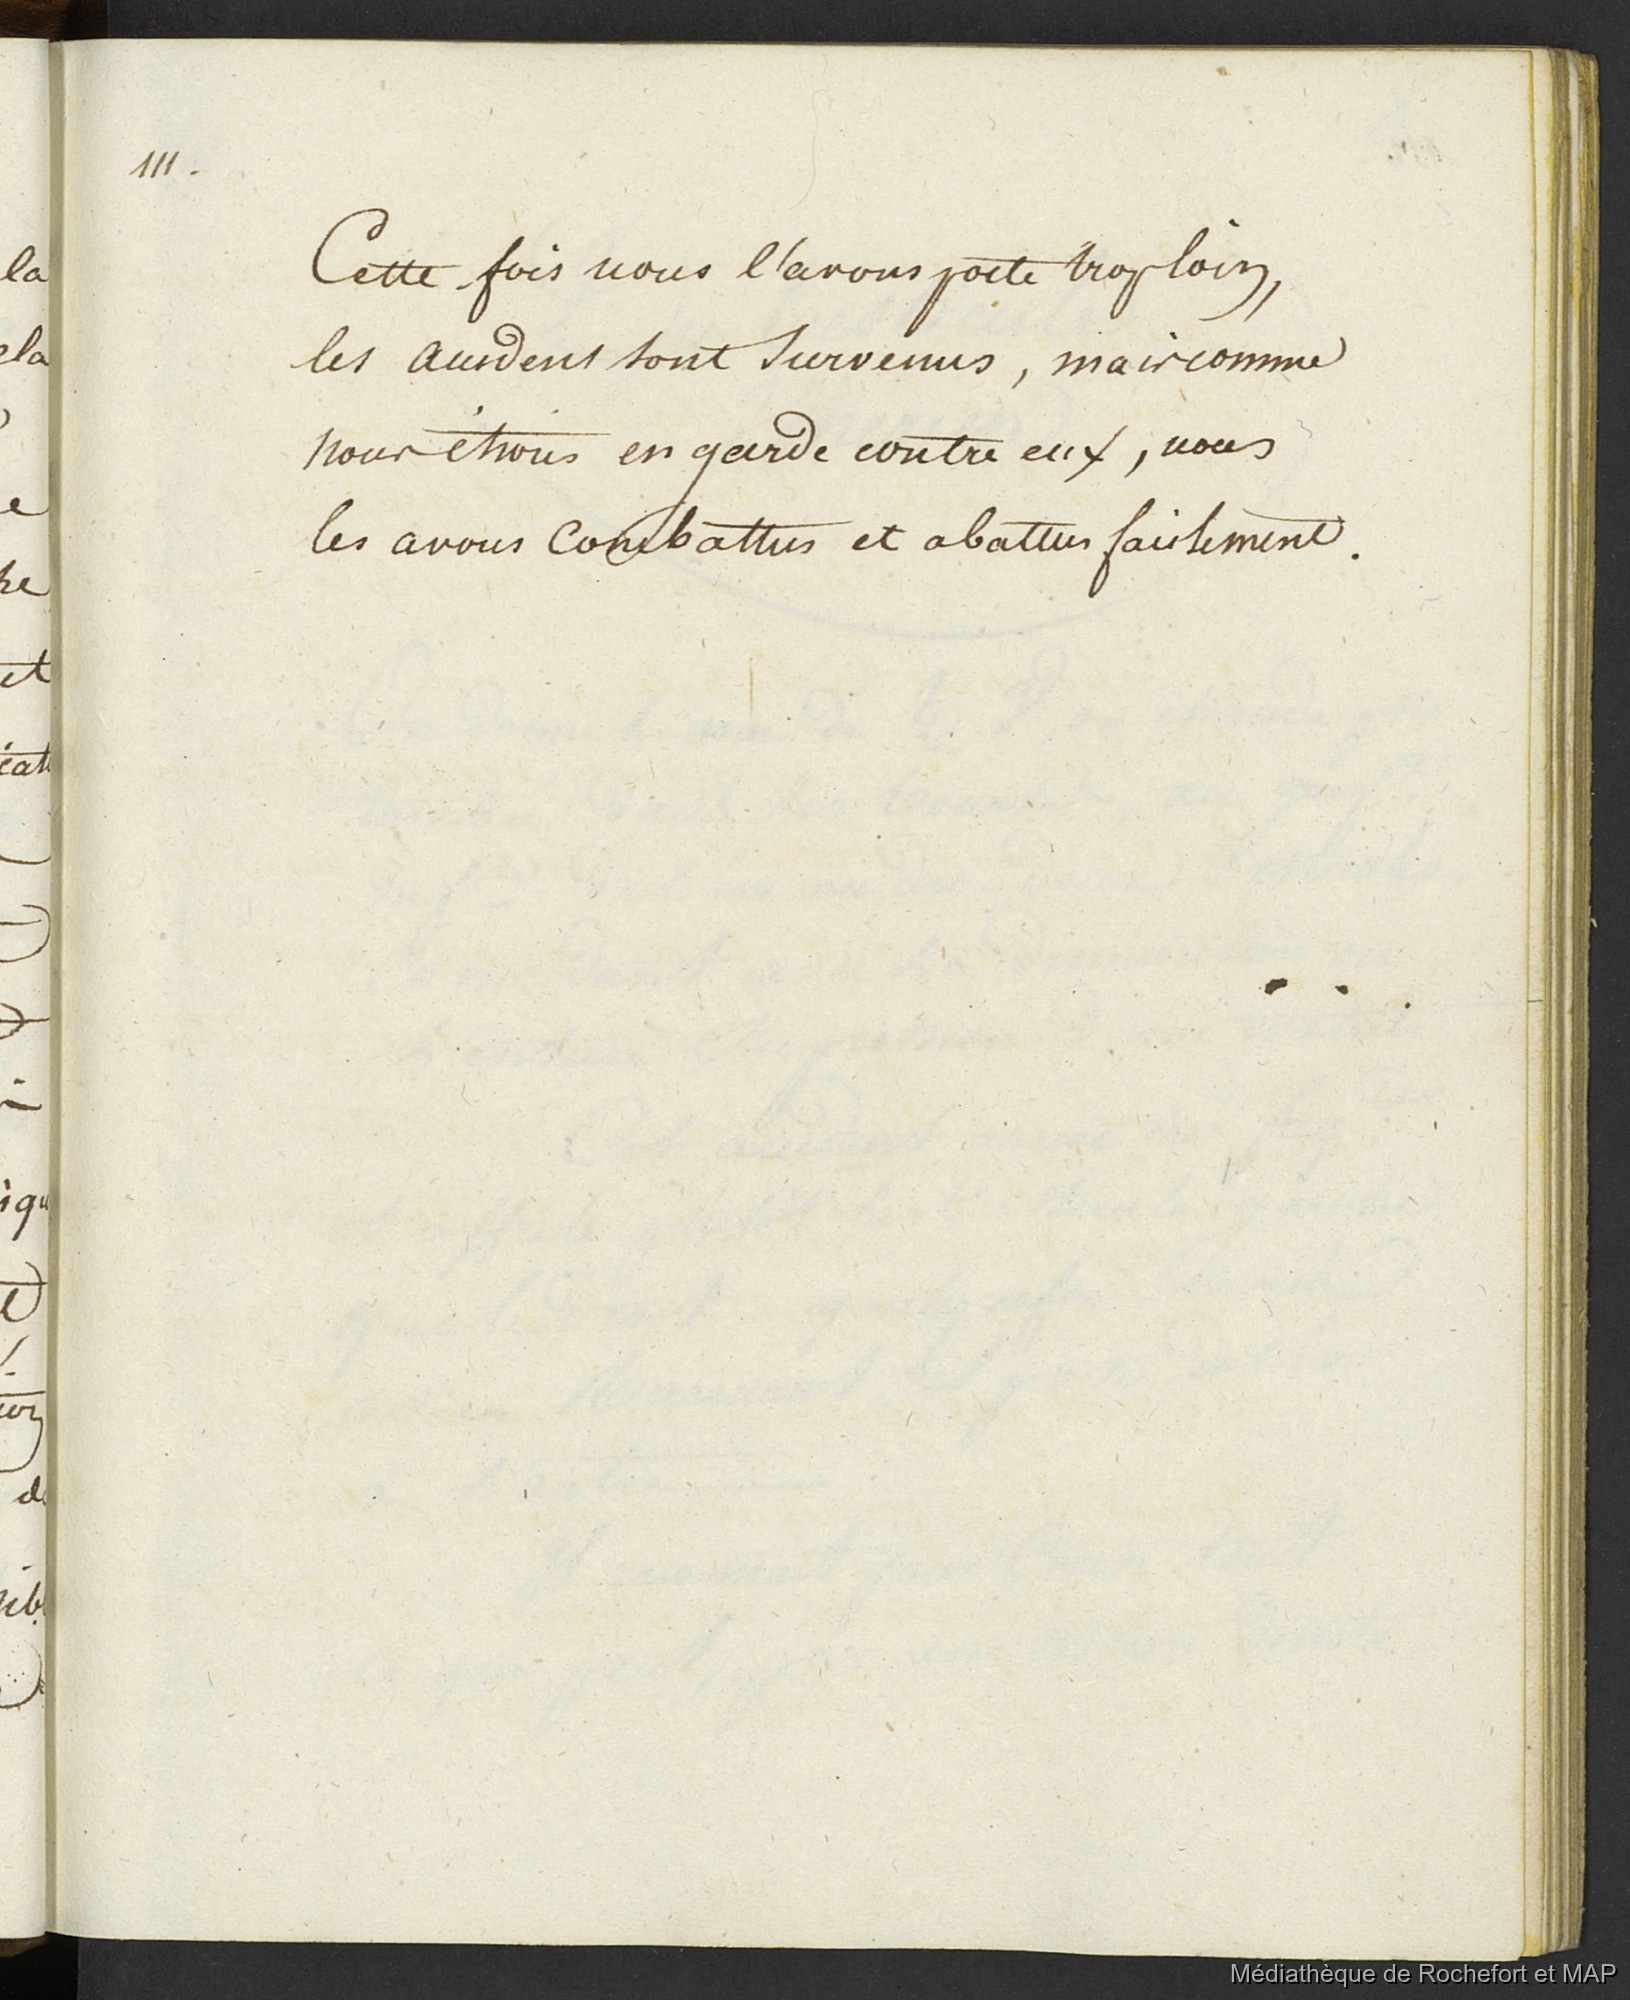 111.
Cette fois nous l'avons porte trop loin,
les accidens sont survenus, mais comme
nous étions en garde contre eux, nous
les avons combattus et abattus facilement.
la
ela
e
he
et
de
Médiathèque de Rochefort et MAP